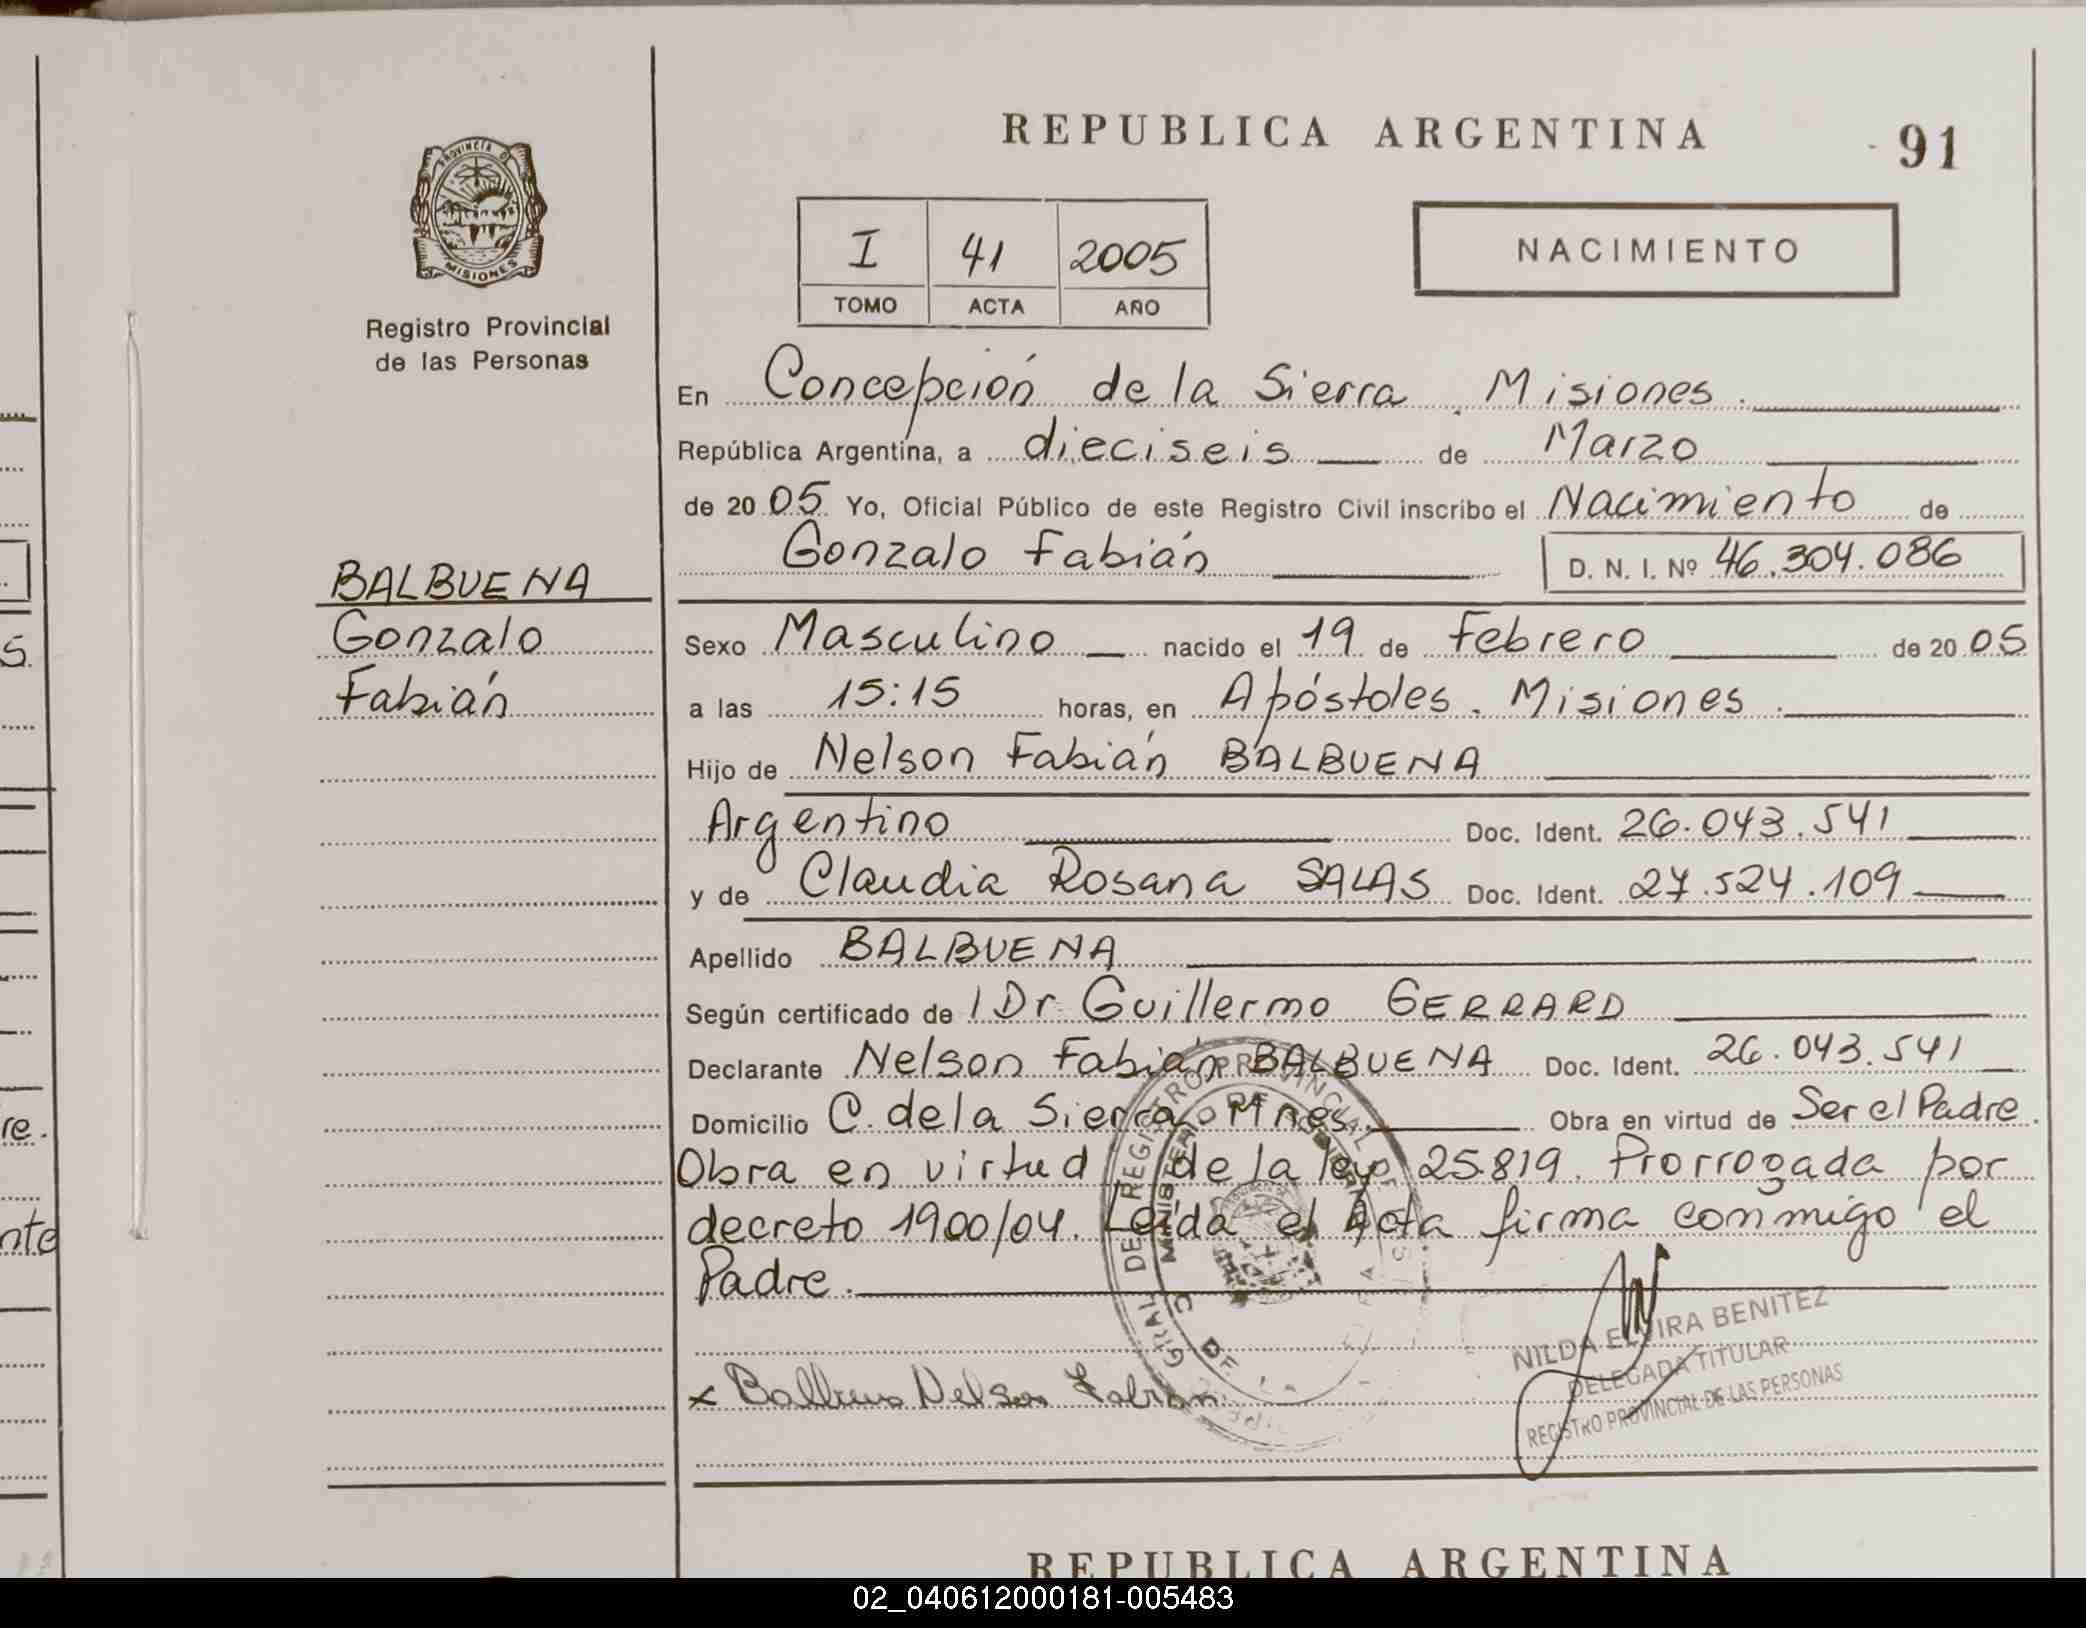 REPUBLICA ARGENTINA
91
PROVINCIA DE
MISIONES
Registro Provincial
de las Personas
I 41 2005
TOMO ACTA AÑO
NACIMIENTO
En Concepción de la Sierra. Misiones.
República Argentina, a dieciseis de Marzo
de 20 05 Yo, Oficial Público de este Registro Civil inscribo el Nacimiento de
Gonzalo Fabián D. N. I. Nº 46.304.086
BALBUENA
Gonzalo
Fabián
Sexo Masculino nacido el 19 de Febrero de 20 05
a las 15:15 horas, en Apóstoles. Misiones.
Hijo de Nelson Fabián BALBUENA
Argentino Doc. Ident. 26.043.541
y de Claudia Rosana SALAS Doc. Ident. 27.524.109
Apellido BALBUENA
Según certificado de l Dr Guillermo GERRARD
Declarante Nelson Fabián BALBUENA Doc. Ident. 26.043.541
Domicilio C. de la Sierra Mnes. Obra en virtud de Ser el Padre.
Obra en virtud de la ley 25.819. Prorrogada por
decreto 1900/04. Leída el Acta firma conmigo el
Padre.
x Nelson Fabian
NILDA ELVIRA BENITEZ
DELEGADA TITULAR
REGISTRO PROVINCIAL DE LAS PERSONAS
REPUBLICA ARGENTINA
02_040612000181-005483